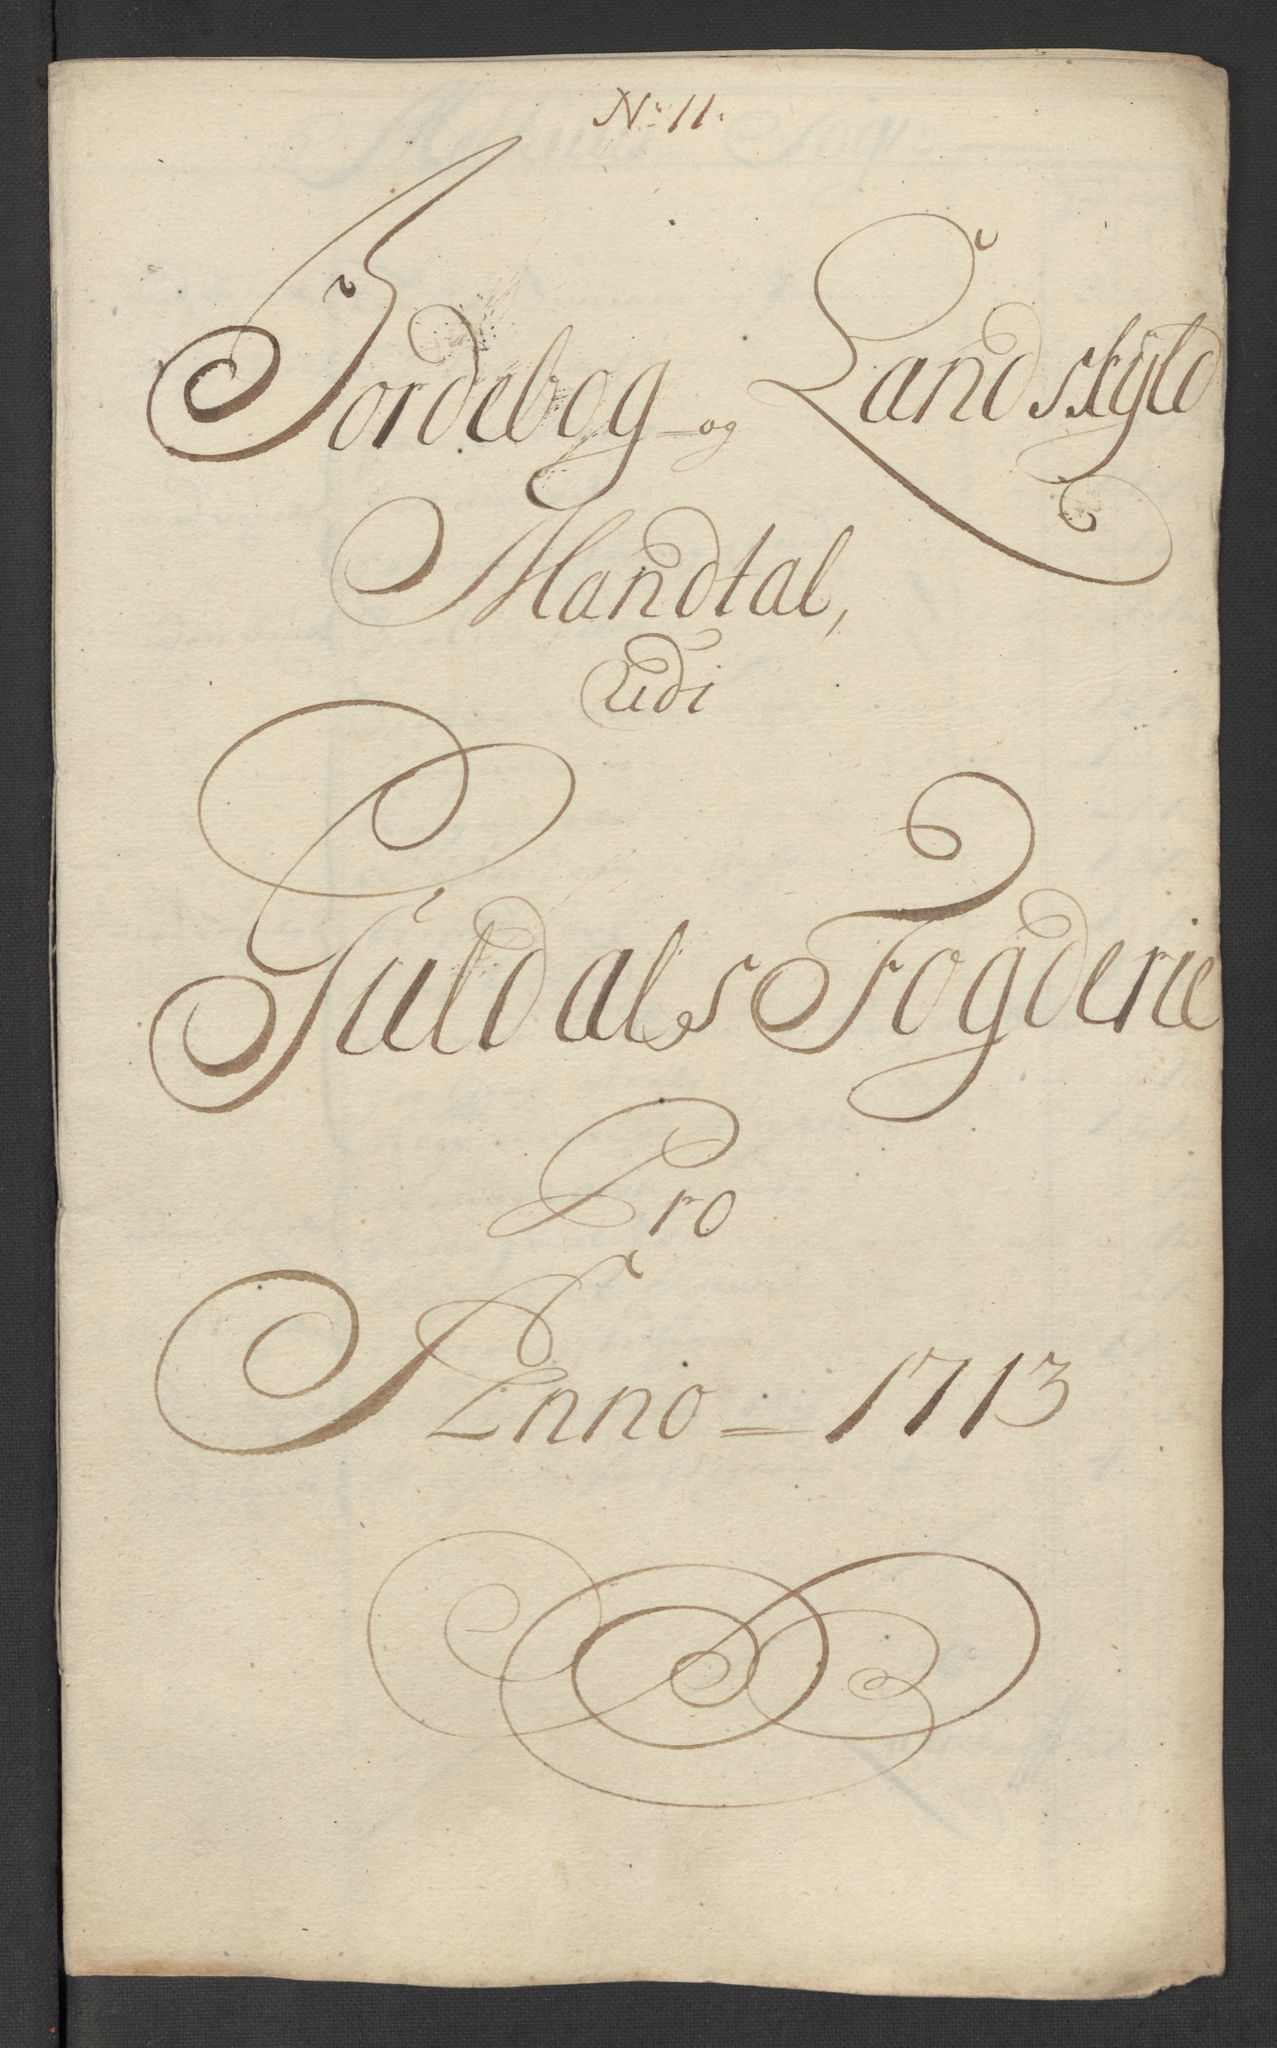 No 11.
Jordebog og Landskyld
Mandtal,
Udi
Guldals Fogderie
Pro
Anno = 1713